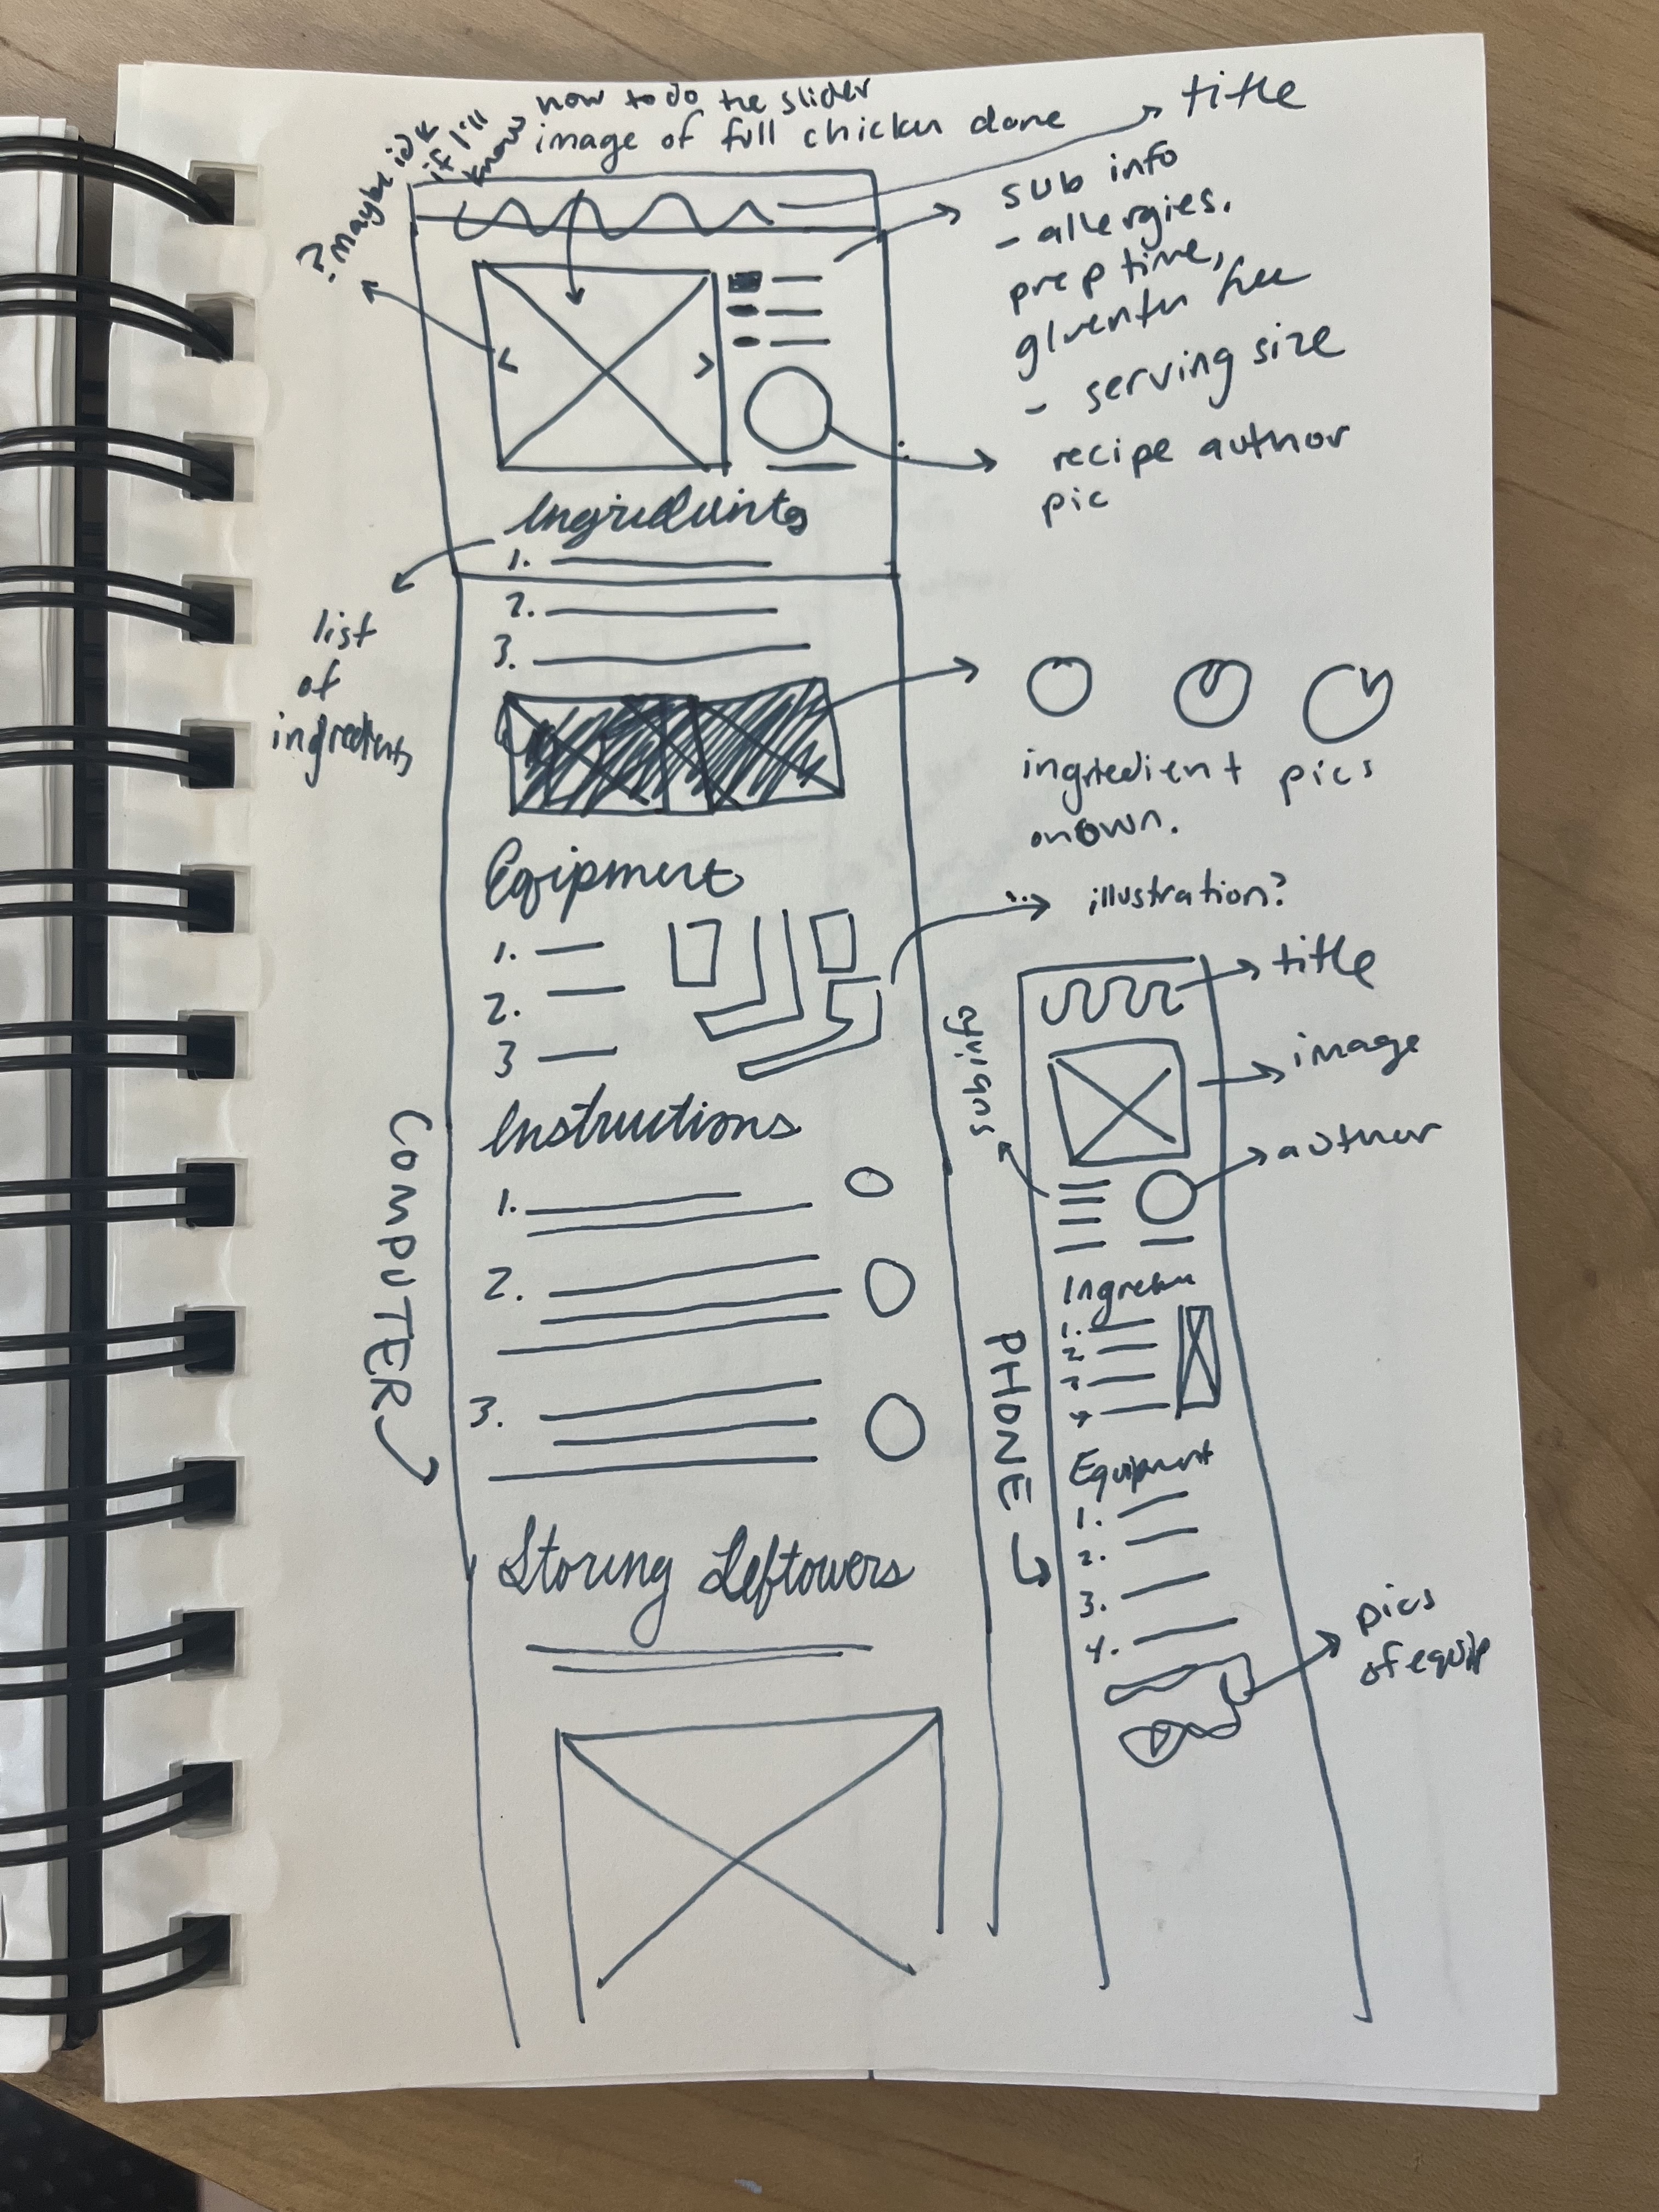 ? maybe idk
if i'll
know
how to do the slider
image of full chicken done
title
sub info
- allergies.
prep time,
gluentn free
- serving size
recipe author
pic
Ingredients
1.
2.
3.
list
of
ingredients
ingredient pics
on own.
Eqipment
1.
2.
3
illustration?
Instructions
1.
2.
3.
COMPUTER
Storing Leftovers
title
image
author
subinfo
PHONE
1.
2
4
Equipment
1.
2.
3.
4.
pics
of equip